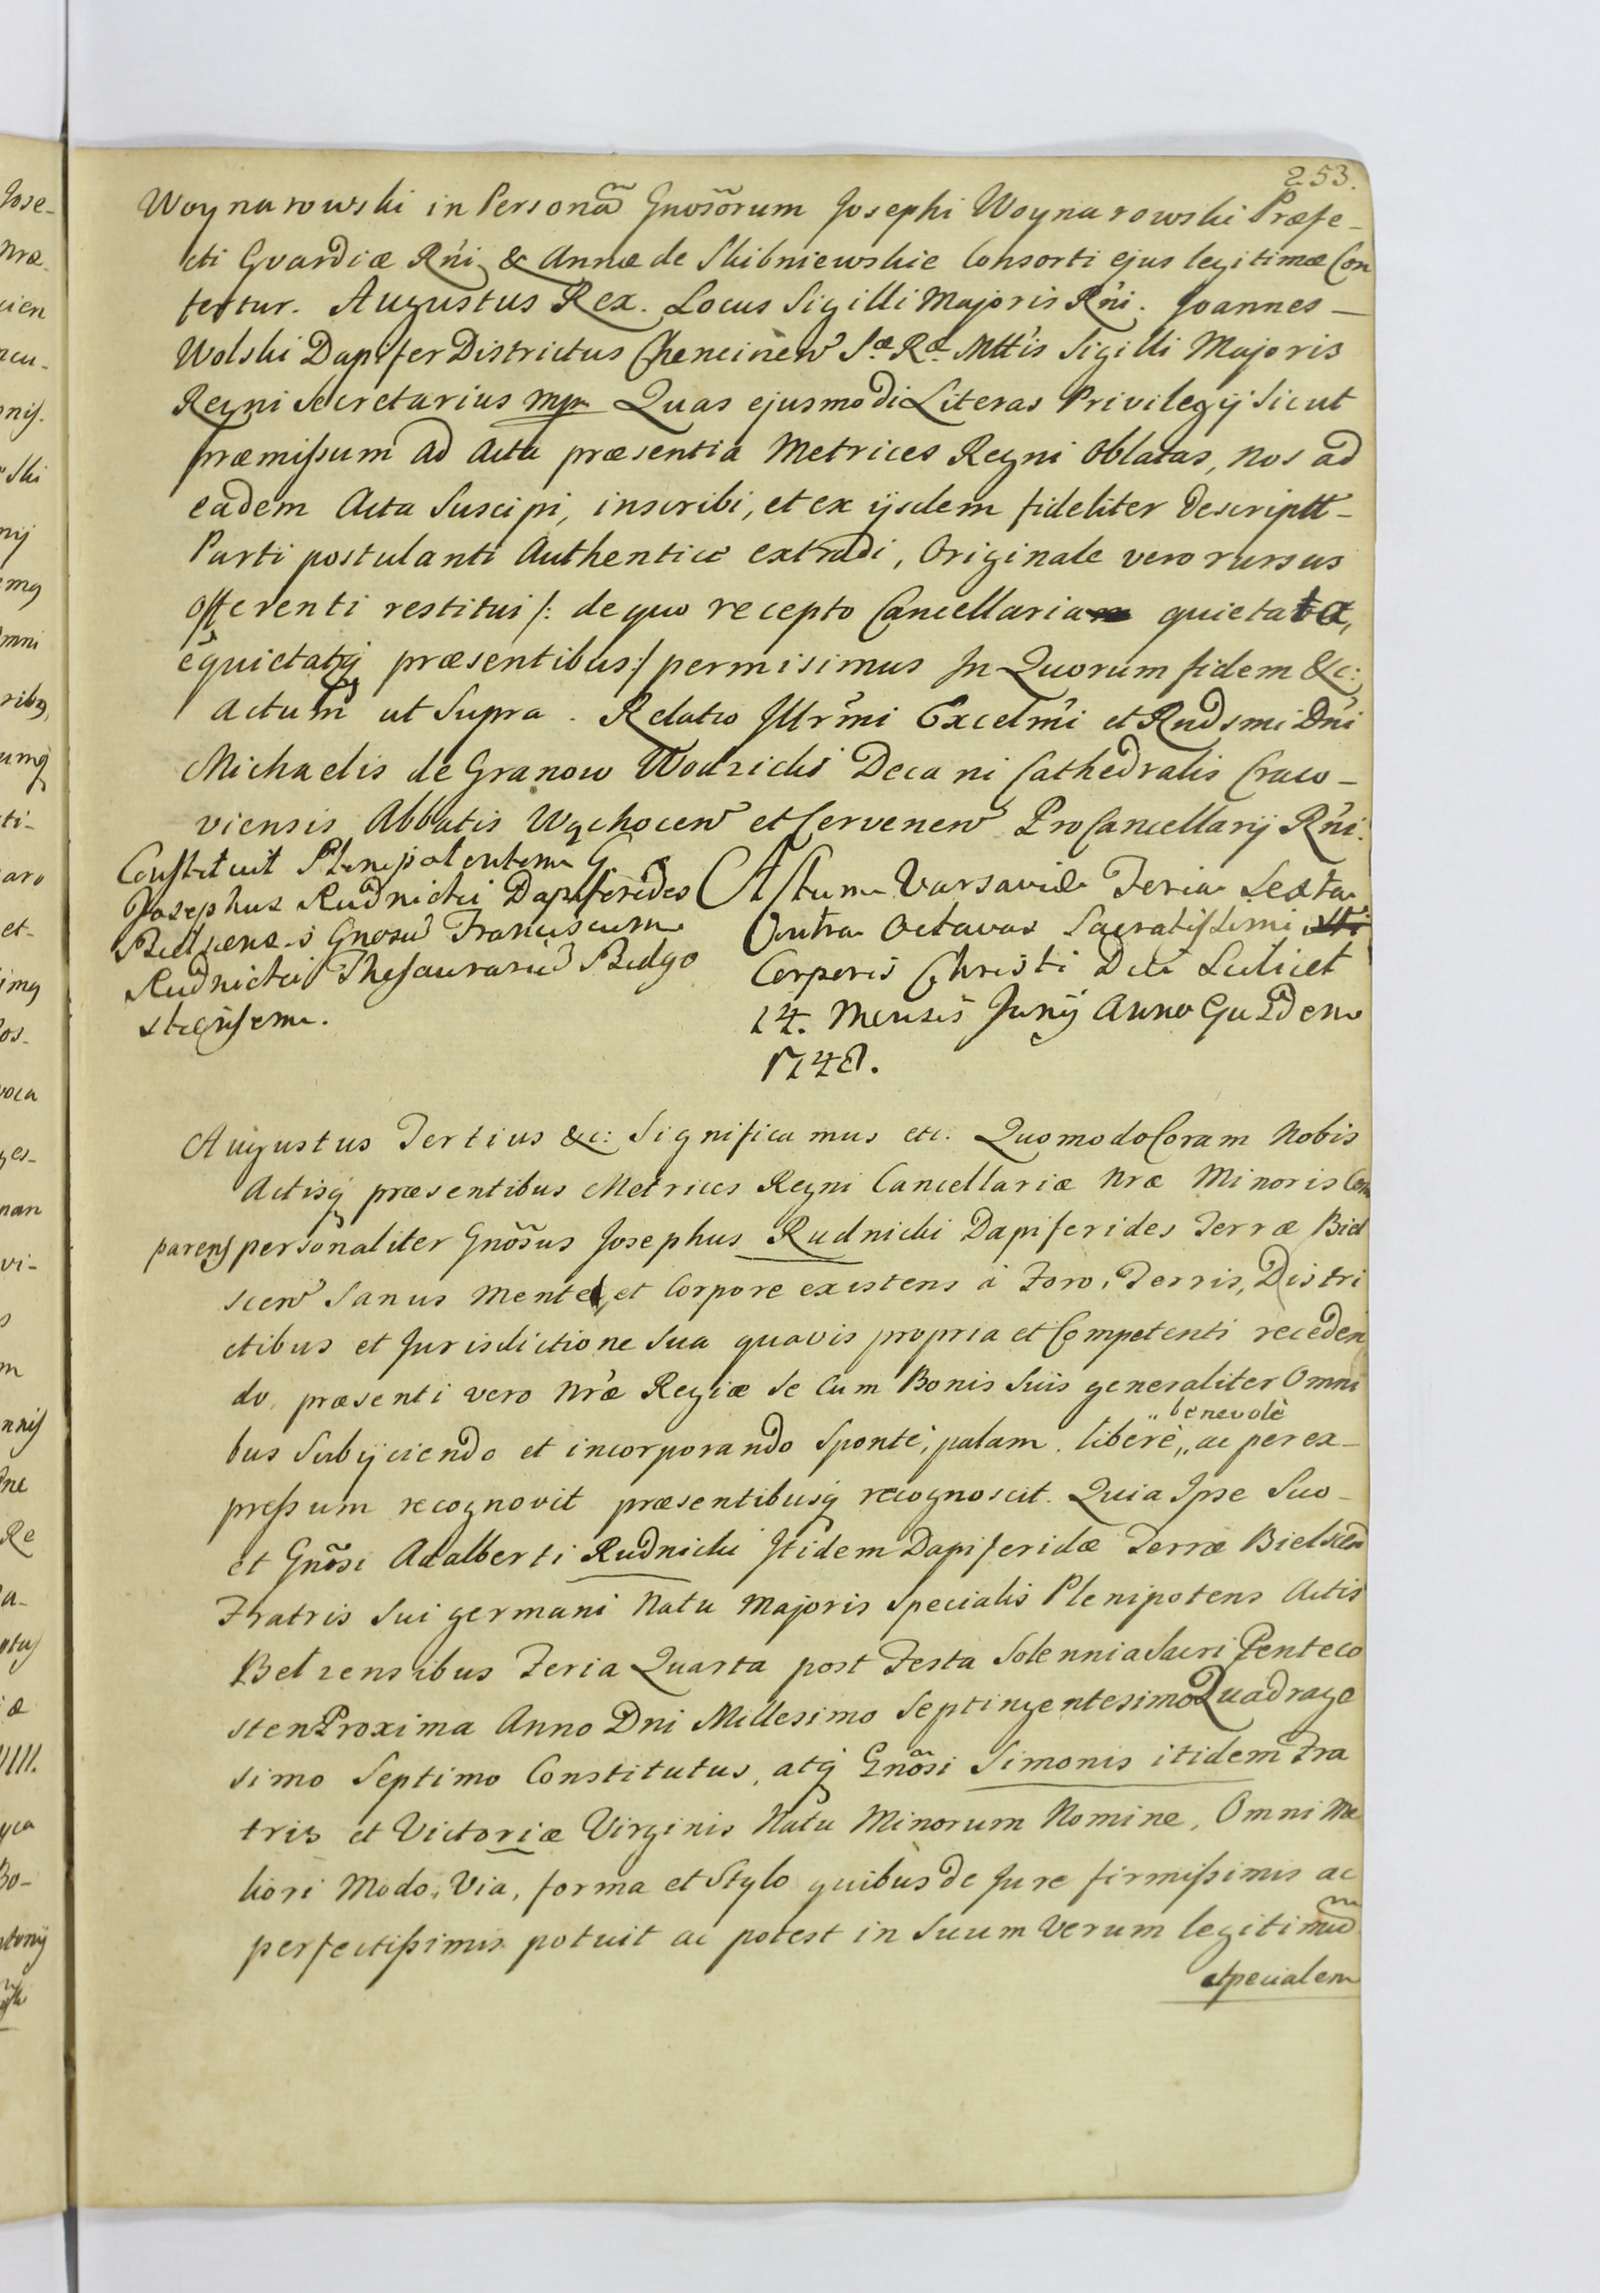 253.
Woynarowski in Persona Gnosorum Josephi Woynarowski Præfe-
cti Gvardiæ Rni & Annæ de Skibniewskie Consorti ejus legitimæ Con
fertur. Augustus Rex. Locus Sigilli Majoris Rni. Joannes -
Wolski Dapifer Districtus Chencinen Sæ Ræ Mttis Sigilli Majoris
Regni Secretarius mpr Quas ejusmodi Literas Privilegij Sicut
præmissum ad Acta præsentia Metrices Regni Oblatas, nos ad
eadem Acta Suscipi, inscribi, et ex ijsdem fideliter descriptt -
Parti postulanti Authentice extradi, Originale vero rursus
Offerenti restitui /: de quo recepto Cancellaria quietata,
equietatq præsentibus :/ permisimus In Quorum fidem &c:
Actum ut Supra. Relatio Illrmi Excelmi et Rndsmi Dni
Michaelis de Granow Wodzicki Decani Cathedralis Craco-
viensis Abbatis Wąchocen et Cervenen ProCancellarij Rni.
Constituit Plenipotentem G.
Josephus Rudnicki Dapiferides
Gnosu Franciscum
Rudnicki Thesaurariu Bidgo
stiensem.
Actum Varsaviæ Feria Sexta
Intra Octavas Sacratissimi
Corporis Christi Die Scilicet
14. Mensis Junij Anno Quidem
1748.
Augustus Tertius &c: Significamus etc. Quomodo Coram Nobis
Actisq præsentibus Metrices Regni Cancellariæ Nræ Minoris Com
parens personaliter Gnosus Josephus Rudnicki Dapiferides Terræ Biel
scen Sanus Mente et Corpore existens à Foro, Terris, Distri
ctibus et Jurisdictione Sua quavis propria et Competenti receden
do, præsenti vero Nræ Regiæ Se Cum Bonis Suis generaliter Omni
bus Subijciendo et incorporando Sponte, palam, liberè, „ benevolè ac per ex-
pressum recognovit præsentibusq recognoscit. Quia Ipse Suo -
et Gnosi Adalberti Rudnicki Itidem Dapiferidæ Terræ Bielscen
Fratris Sui germani Natu Majoris Specialis Plenipotens Actis
Belzensibus Feria Quarta post Festa Solennia Sacri Penteco
sten Proxima Anno Dni Millesimo Septingentesimo Quadrage
simo Septimo Constitutus, atq Gnosi Simonis itidem Fra
tris et Victoriæ Virginis Natu Minorum Nomine, Omni Me
liori Modo, Via, forma et Stylo quibus de Jure firmissimis ac
perfectissimis potuit ac potest in Suum Verum legitimu
Specialem